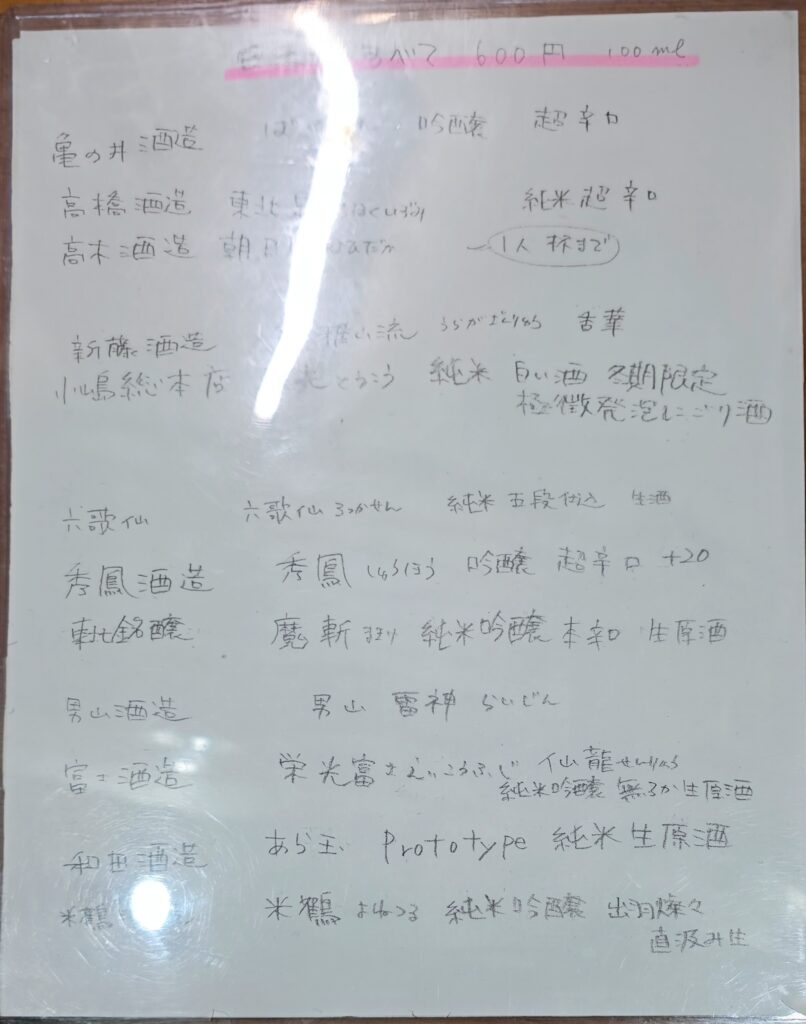 べて 600円 100ml
亀の井酒造 ば 吟醸 超辛口
高橋酒造 東北 はくいずみ 純米超辛口
高木酒造 朝日 だか 1人 杯まで
新藤酒造 雅山流 うらがさんりゅう 舌華
小嶋総本店 光とうこう 純米 白い酒 冬期限定
極微発泡にごり酒
六歌仙 六歌仙 ろっかせん 純米 五段仕込 生酒
秀鳳酒造 秀鳳 しゅうほう 吟醸 超辛口 +20
東北銘醸 魔斬 まきり 純米吟醸 本辛口 生原酒
男山酒造 男山 雷神 らいじん
富士酒造 栄光冨士 えいこうふじ 仙龍 せんりゅう
純米吟醸 無ろか生原酒
和田酒造 あら玉 Prototype 純米 生原酒
米鶴 米鶴 よねつる 純米吟醸 出羽燦々
直汲み生